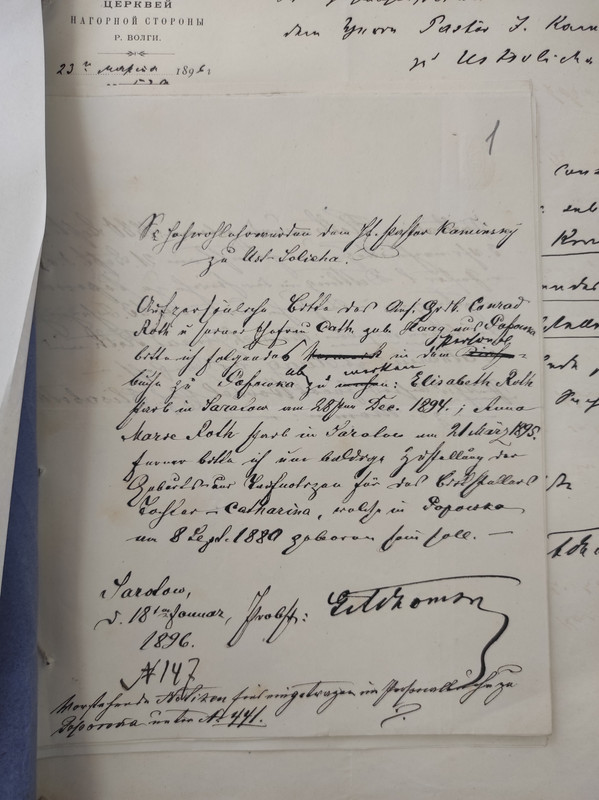 ЦЕРКВЕЙ
НАГОРНОЙ СТОРОНЫ
Р. ВОЛГИ.
23го марта 1896 г.
dem Herrn Pastor J. Kam
zu Ust-Solicha
1
Sr Hochwohlehrwürden dem H. Pastor Kaminsky
zu Ust-Solicha.
Auf persönliche Bitte des Ans. Conrad
Roth u seiner Ehefrau Cath. geb. Haag aus Popowka
bitte ich folgendes in dem Personal
buche zu Popowka zu merken: Elisabeth Roth
starb in Saratow am 28sten Dec. 1894.; Anna
Marie Roth starb in Saratow am 21 März 1895.
Ferner bitte ich um baldige Zustellung der
für des Bittstellers
Tochter – Catharina, welche in Popowka
am 8 Sept. 1880 geboren sein soll. —
Saratow,
d. 18ten Januar, Probst:
1896.
№ 147
Vorstehende Notizen sind eingetragen im Personalbuche zu
Popowka unter № 441.